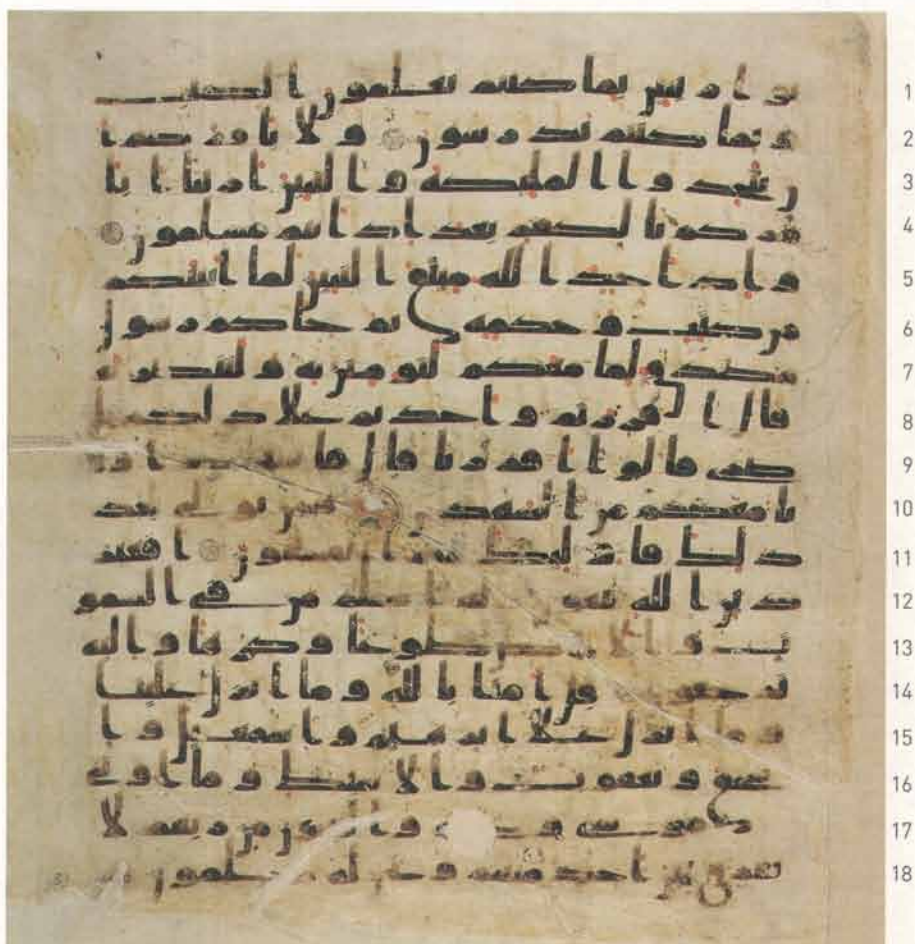 نوا ربنين بما كنتم تعلمون الكتب
وبما كنتم تدرسون ولا يامركم ا
ن تتخذوا الملئكة والنبين اربابا ايا
مركم بالكفر بعد اذ انتم مسلمون
واذ اخذ الله ميثق النبين لما اتيتكم
من كتب وحكمة ثم جاكم رسول
مصدق لما معكم لتومنن به ولتنصرنه
قال اقررتم واخذتم على ذلكم ا
صرى قالوا اقررنا قال فاشهدوا وا
نا معكم من الشهدين فمن تولى بعد
ذلك فاولئك هم الفسقون افغير
دين الله يبغون وله اسلم من فى السمو
ت والارض طوعا وكرها واليه
ترجعون قل امنا بالله وما انزل علينا
وما انزل على ابرهيم واسمعيل وا
سحق ويعقوب والاسبط وما اوتى
موسى وعيسى والنبيون من ربهم لا
نفرق بين احد منهم ونحن له مسلمون
1
2
3
4
5
6
7
8
9
10
11
12
13
14
15
16
17
18